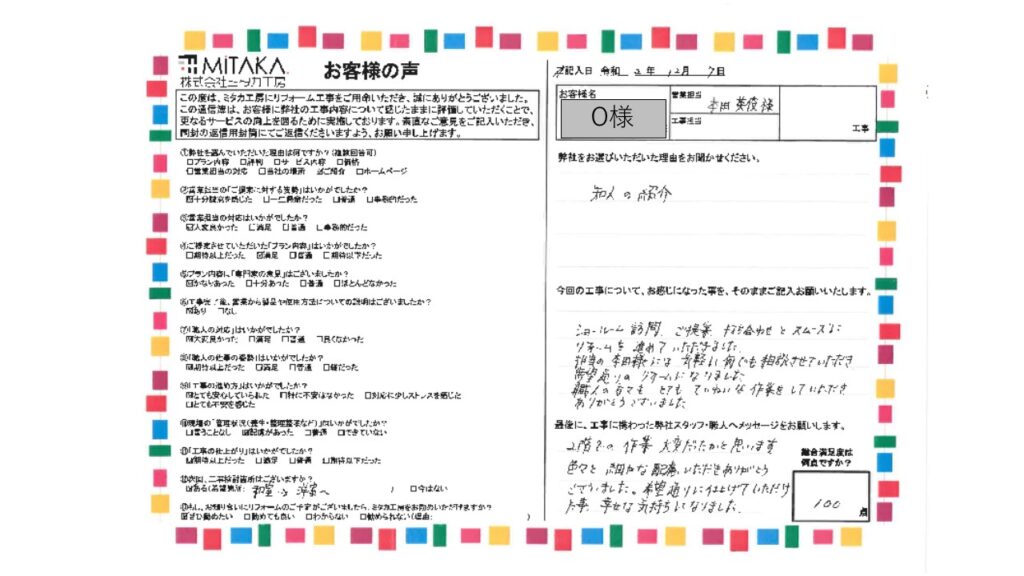 MiTAKA
株式会社ミタカ工房
お客様の声
この度は、ミタカ工房にリフォーム工事をご用命いただき、誠にありがとうございました。
この通信簿は、お客様に弊社の工事内容について感じたままに評価していただくことで、
更なるサービスの向上を図るために実施しております。素直なご意見をご記入いただき、
同封の返信用封筒にてご返信くださいますよう、お願い申し上げます。
①弊社を選んでいただいた理由は何ですか？(複数回答可)
□プラン内容 □評判 □サービス内容 □価格
□営業担当の対応 □当社の場所 ☑ご紹介 □ホームページ
②営業担当の「ご提案に対する姿勢」はいかがでしたか？
☑十分誠意を感じた □一生懸命だった □普通 □事務的だった
③営業担当の対応はいかがでしたか？
☑大変良かった □満足 □普通 □事務的だった
④ご提案させていただいた「プラン内容」はいかがでしたか？
□期待以上だった ☑満足 □普通 □期待以下だった
⑤プラン内容に「専門家の意見」はございましたか？
☑かなりあった □十分あった □普通 □ほとんどなかった
⑥工事完了後、営業から留意や使用方法についての説明はございましたか？
☑あり □なし
⑦「職人の対応」はいかがでしたか？
☑大変良かった □満足 □普通 □良くなかった
⑧「職人の仕事の姿勢」はいかがでしたか？
☑期待以上だった □満足 □普通 □雑だった
⑨「工事の進め方」はいかがでしたか？
☑とても安心していられた □特に不安はなかった □対応に少しストレスを感じた
□とても不安を感じた
⑩現場の「管理状況(養生・整理整頓など)」はいかがでしたか？
□言うことなし ☑配慮があった □普通 □できていない
⑪「工事の仕上がり」はいかがでしたか？
☑期待以上だった □満足 □普通 □期待以下だった
⑫次回、ご検討箇所はございますか？
☑ある(希望箇所: 和室を洋室へ ) □今はない
⑬もし、お知り合いにリフォームのご予定がございましたら、ミタカ工房をお勧めいただけますか？
☑ぜひ勧めたい □勧めても良い □わからない □勧められない(理由: )
ご記入日 令和 2 年 12 月 7 日
お客様名
O様
営業担当
本田 英俊 様
工事担当
工事
弊社をお選びいただいた理由をお聞かせください。
知人の紹介
今回の工事について、お感じになった事を、そのままご記入お願いいたします。
ショールーム訪問、ご提案、打ち合わせとスムーズに
リフォームを進めていただきました。
担当の本田様には気軽に何でも相談させていただき
希望通りのリフォームになりました。
職人の方々も とても ていねいな作業をしていただき
ありがとうございました。
最後に、工事に携わった弊社スタッフ・職人へメッセージをお願いします。
2階での作業 大変だったかと思います
色々と細かな配慮いただきありがとう
ございました。希望通りに仕上げていただけ
た事、幸せな気持ちになりました。
総合満足度は
何点ですか？
100 点